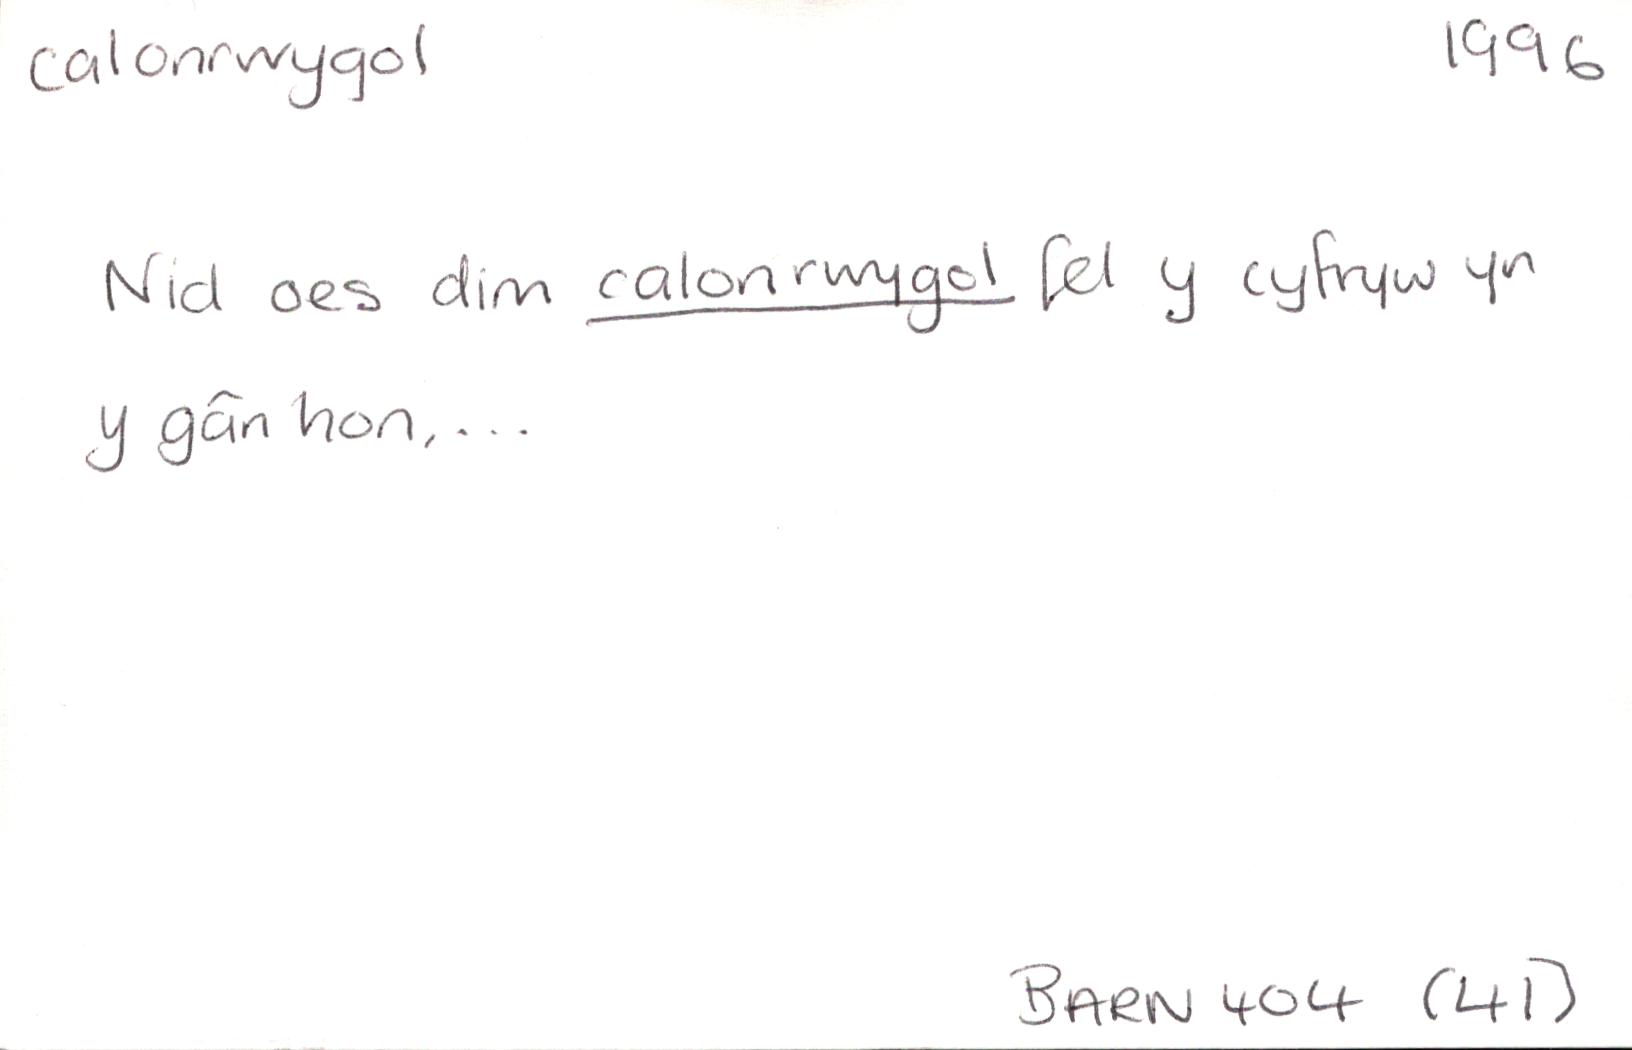 calonrwygol 1996
Nid oes dim calonrwygol fel y cyfryw yn
y gân hon,...
BARN 404 (41)